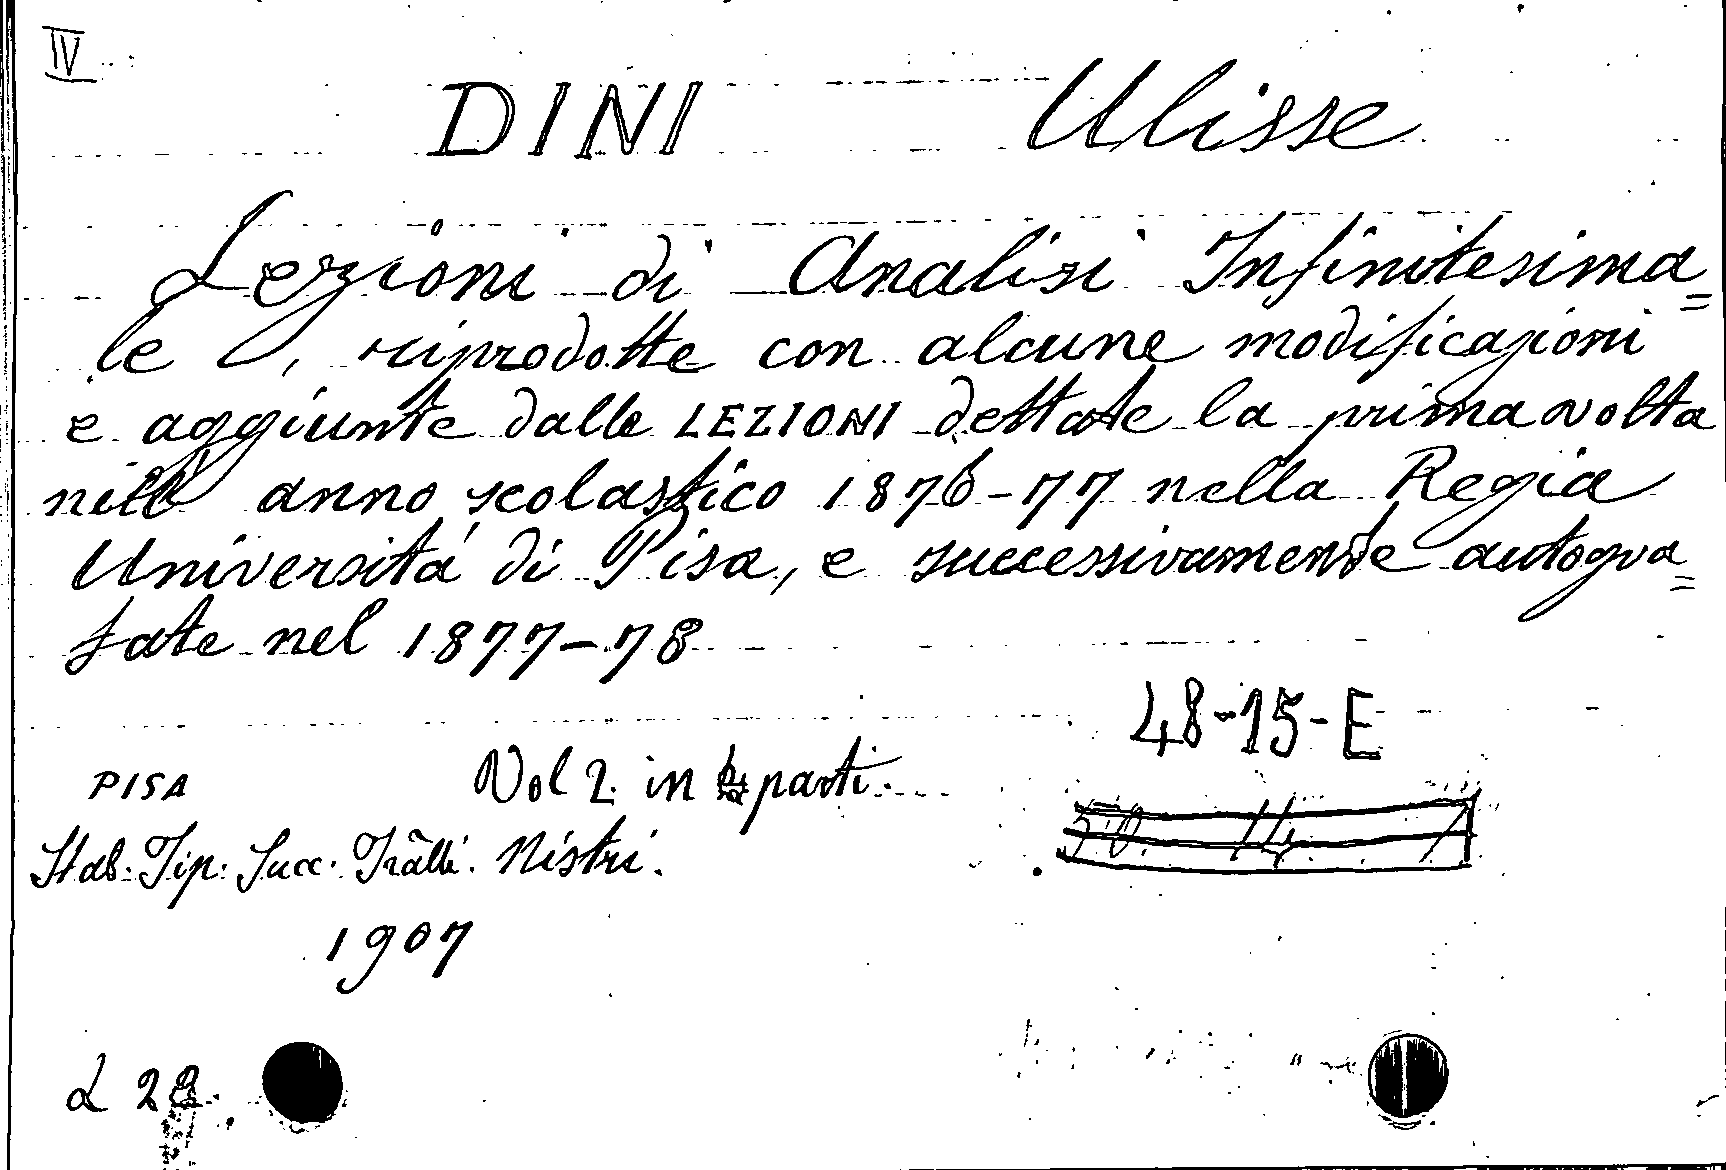 IV
DINI Ulisse
Lezioni di Analisi Infinitesima=
le, riprodotte con alcune modificazioni
e aggiunte dalle LEZIONI dettate la prima volta
nell' anno scolastico 1876-77 nella Regia
Università di Pisa, e successivamente autogra=
fate nel 1877-78
48-15-E
Vol 2. in parti.
PISA
50. 14. 7
Stab. Tip. Succ. Frãlli. Nistri.
1907
L 22